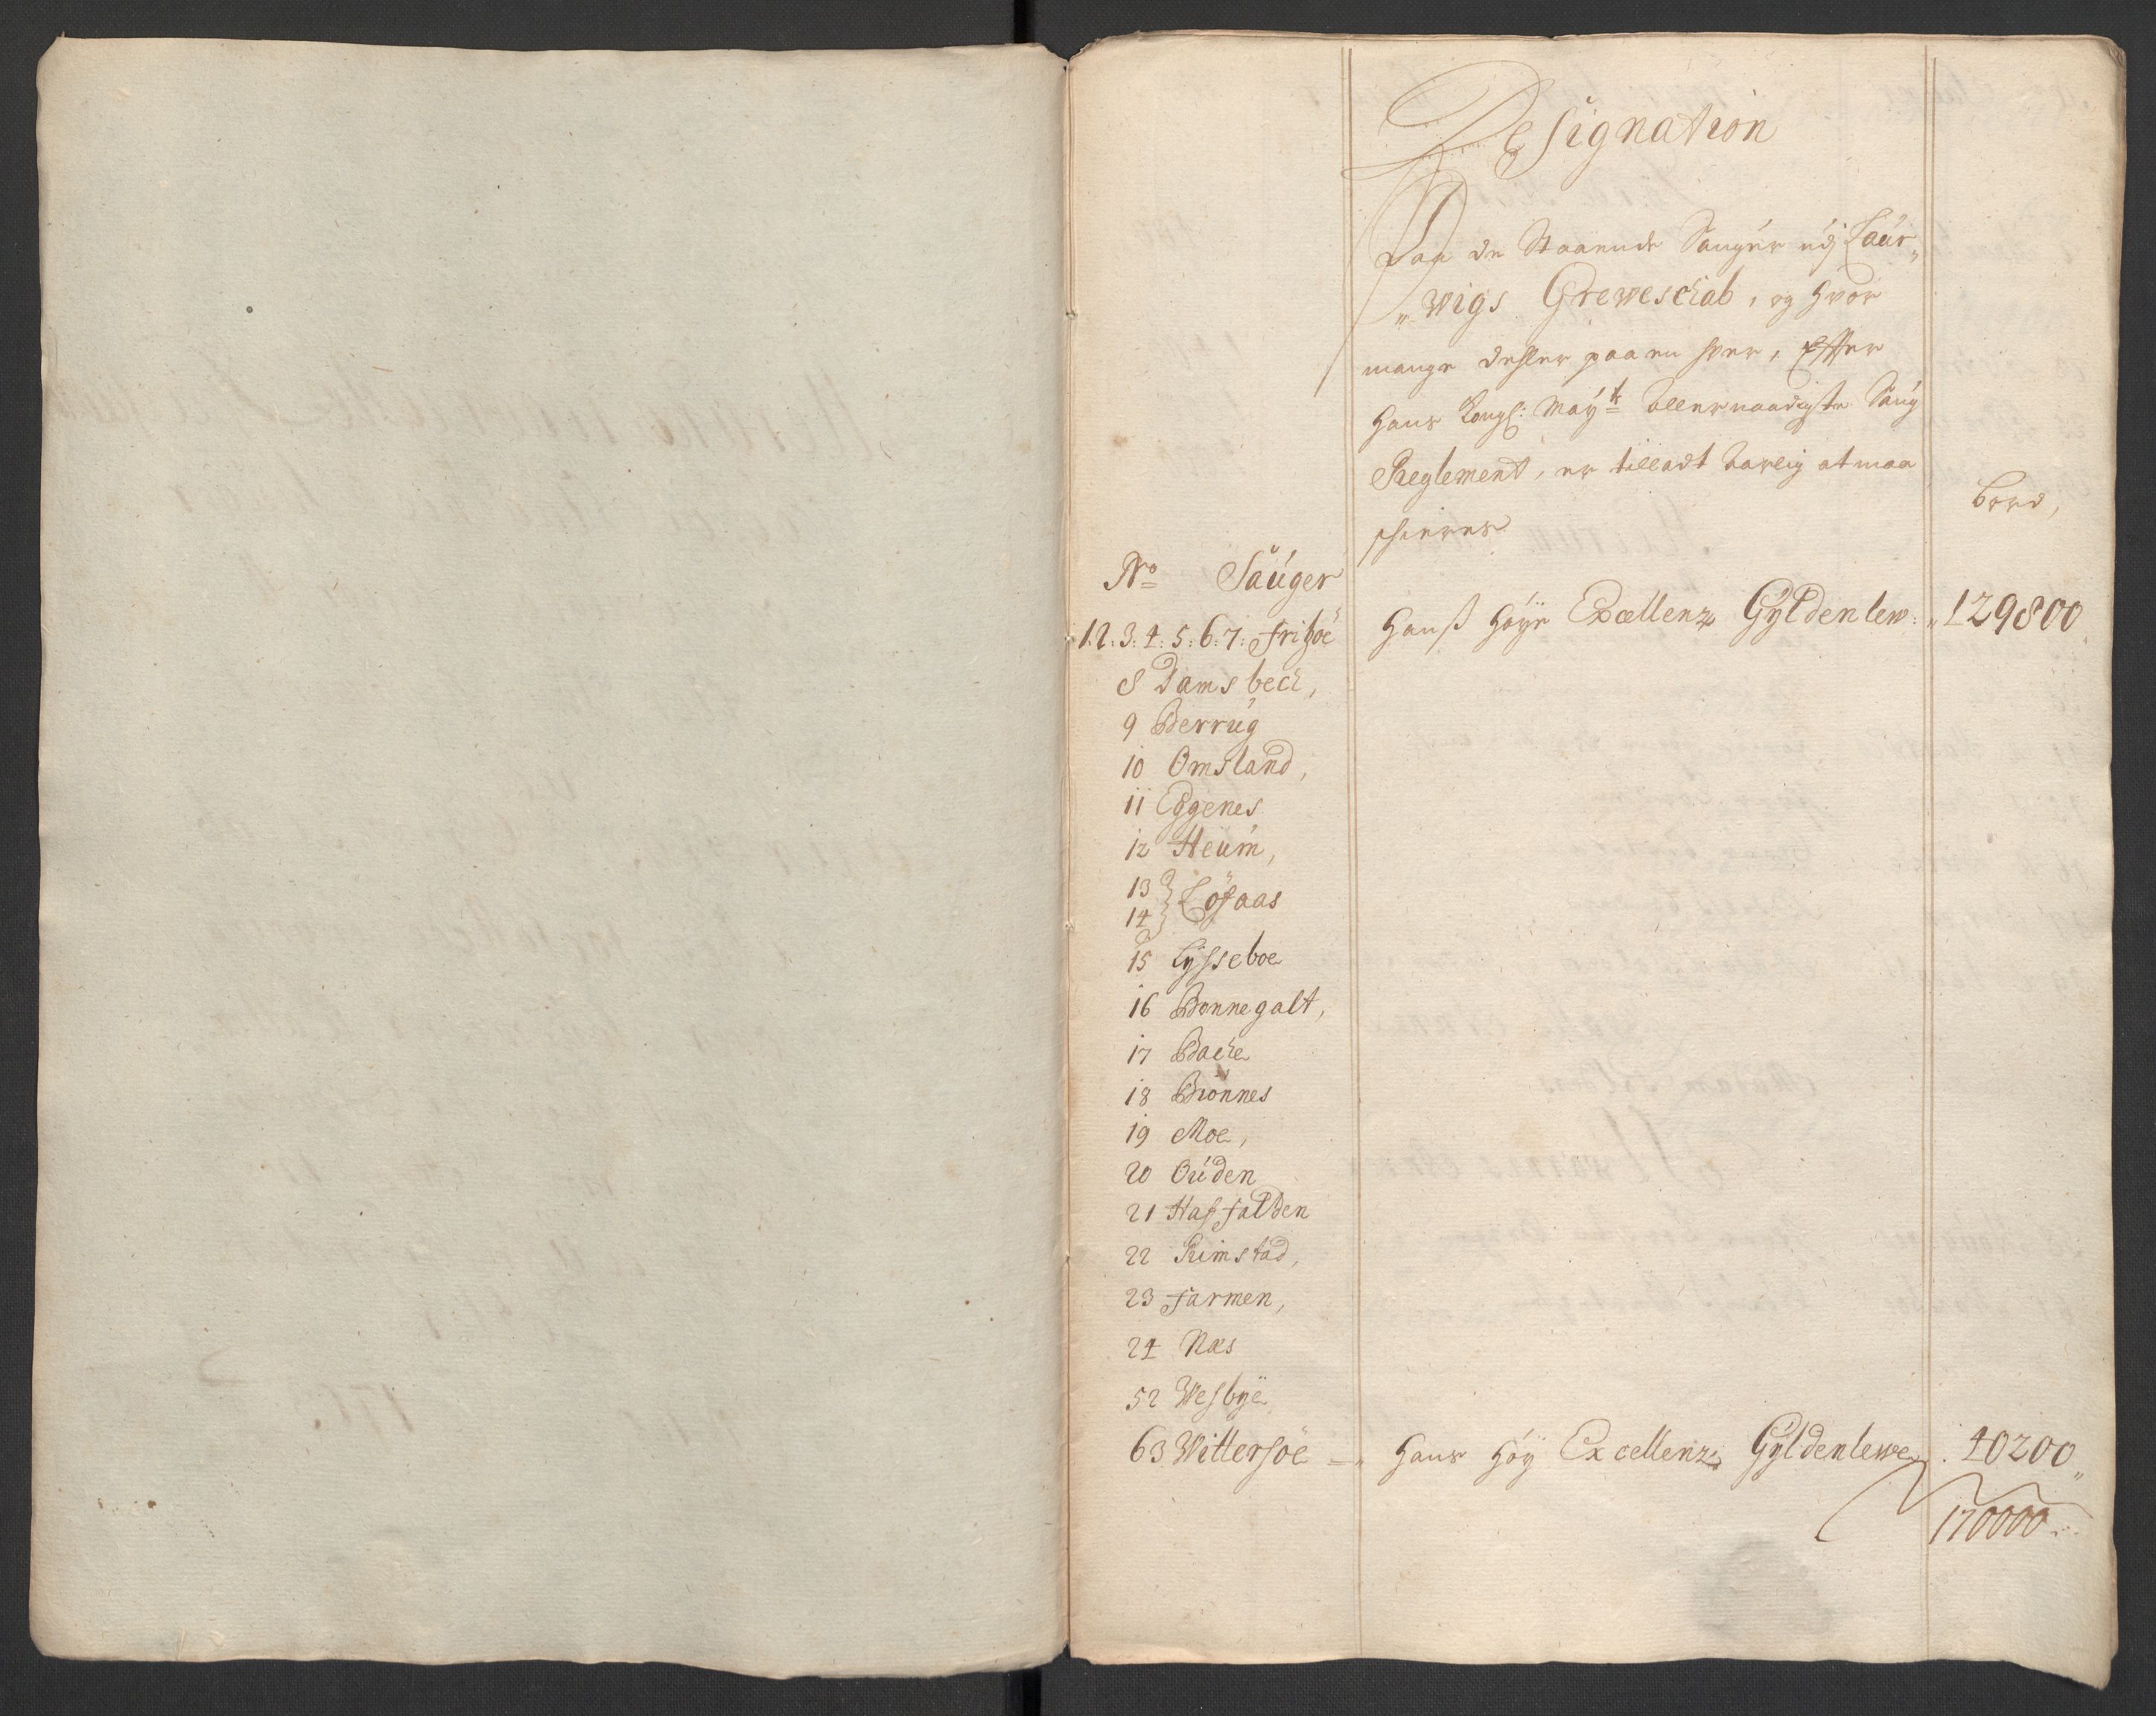 Designation
Paa de Staaende Sauger udj Laur„
„wigs Greweschab, og hvor
mange deller paa en hver, Efter
Hans Kongl: Mayts Allernaadigste Saug
Reglement, er tilladt Aarlig at maa
skieres
Bord,
No Sauger
1. 2. 3. 4. 5. 6. 7. Fritzöe Hanß Höye Excellenz Gyldenlew: „129800
8 Damsbech,
9 Berrug
10 Omsland,
11 Eggenes
12 Heum,
13
14 } Löfaas
15 Lysseboe
16 Bonnegalt,
17 Bache
18 Brönnes
19 Moe,
20 Ouden
21 Haffalden
22 Rimstad,
23 Farmen,
24 Næs
52 Wesbye
63 Wittersöe = „ Hans Höy Excellenz Gyldenlewe . 40200„
170000